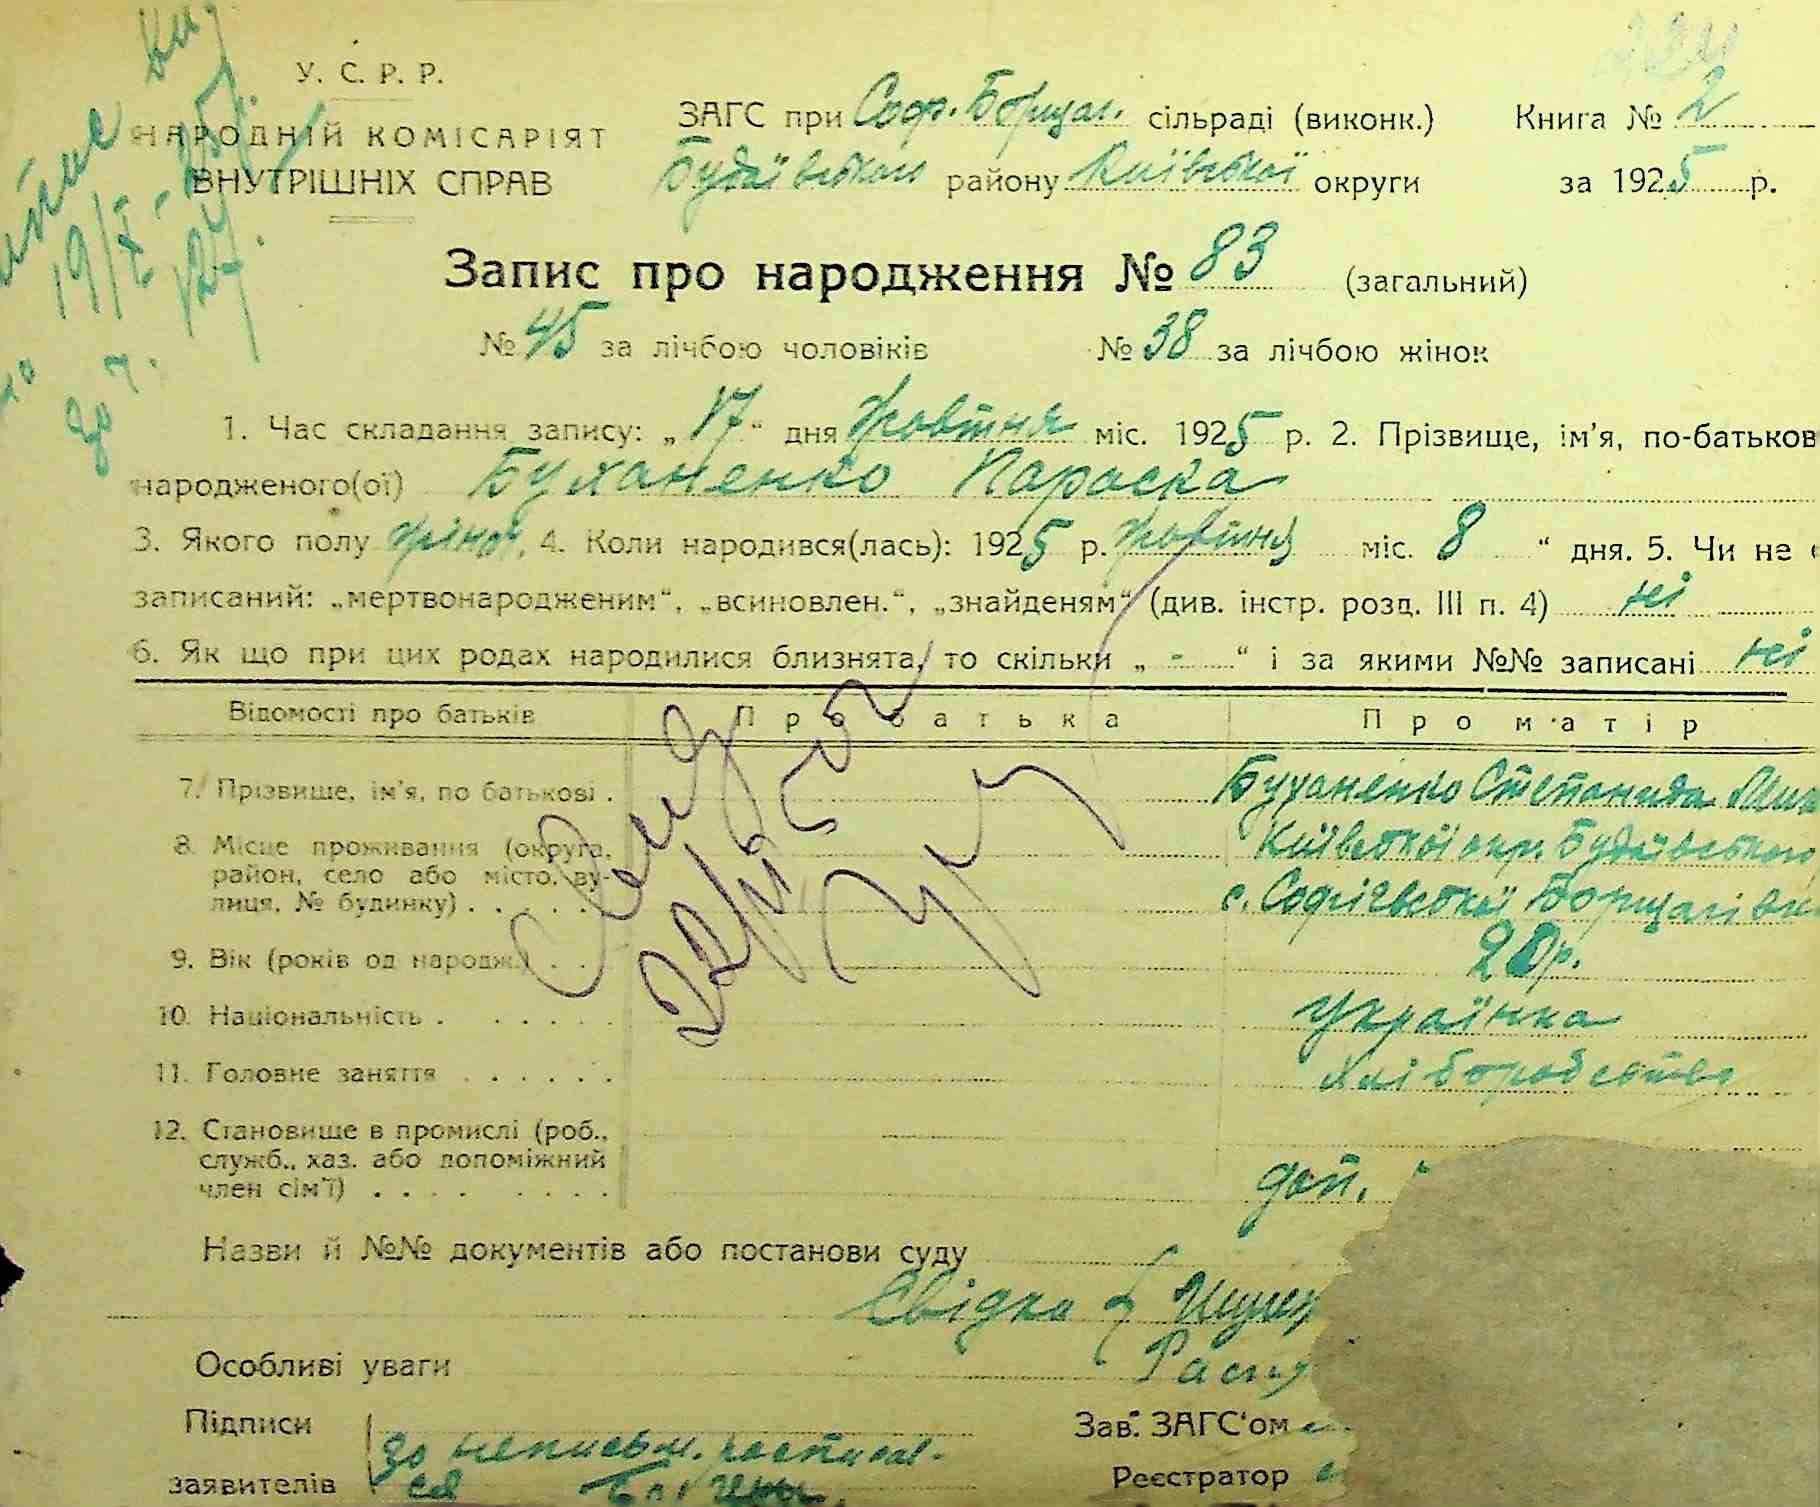 У. С. Р. Р.
НАРОДНІЙ КОМІСАРІЯТ
ВНУТРІШНІХ СПРАВ
ЗАГС при Соф. Борщаг. сільраді (виконк.) Книга № 2
Будаївськом району Київської округи за 1925 р.
Запис про народження № 83 (загальний)
№ 45 за лічбою чоловіків № 38 за лічбою жінок
1. Час складання запису: „17“ дня Жовтня міс. 1925 р. 2. Прізвище, ім’я, по-батьков
народженого(ої) Буханенко Параска
3. Якого полу жіноч. 4. Коли народився(лась): 1925 р. Жовтня міс. 8 “ дня. 5. Чи не
записаний: „мертвонародженим“, „всиновлен.“, „знайденям“ (див. інстр. розд. III п. 4) ні
6. Як що при цих родах народилися близнята, то скільки „ - “ і за якими №№ записані ні
Відомості про батьків Про батька Про матір
7. Прізвище, ім’я, по батькові . Буханенко Степанида
8. Місце проживання (округа, район, село або місто, вулиця, № будинку) . . . . . Київської окр. Будаївського
с. Софіївської Борщагівки
9. Вік (років од народж.) . . 20 р.
10. Національність . . . . . . Українка
11. Головне заняття . . . . . . хліборобство
12. Становище в промислі (роб., служб., хаз. або допоміжний член сім’ї) . . . . . . . . доп.
Назви й №№ документів або постанови суду
Свідки
Особливі уваги
Підписи
заявителів
за неписьм. расписал-
ся
Зав. ЗАГС‘ом
Реєстратор